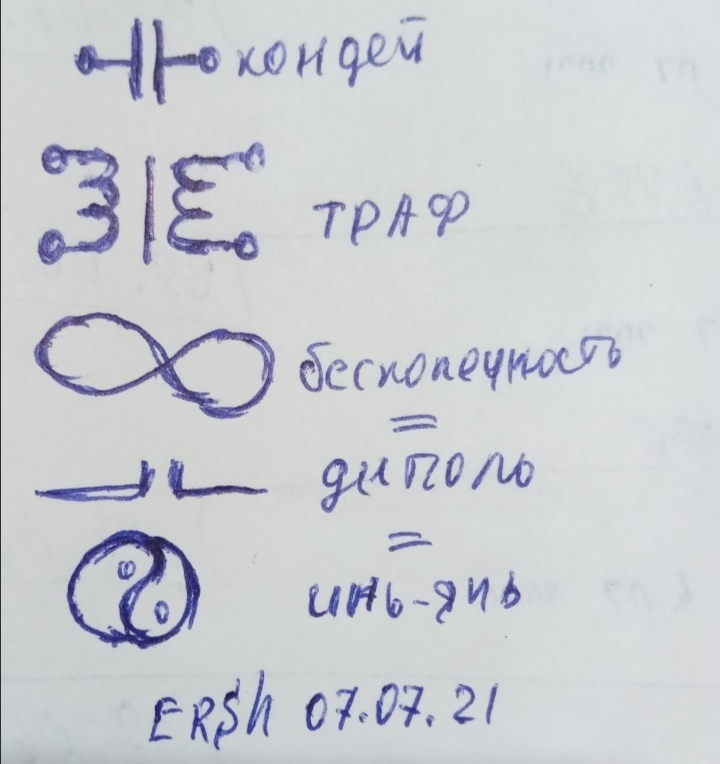 кондей
ТРАФ
бесконечность
=
диполь
=
инь-янь
ERSh 07.07.21